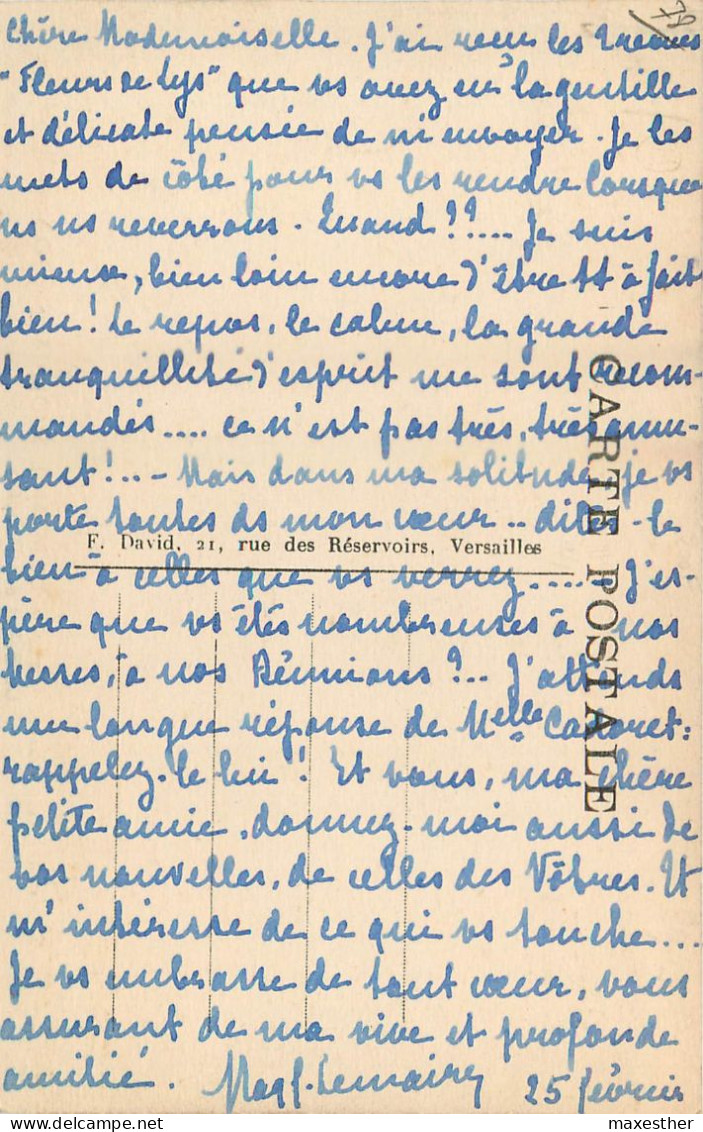 79
Chère Mademoiselle. J'ai reçu les
"Fleurs de Lys" que vs avez eu la gentille
et délicate pensée de m'envoyer. Je les
mets de côté pour vs les rendre lorsque
ns ns reverrons. Quand!?.... Je suis
mieux, bien loin encore d'être tt à fait
bien! Le repos, le calme, la grande
tranquillité d'esprit me sont recom-
mandés.... ce n'est pas très, très amu-
sant!..- Mais dans ma solitude, je vs
porte toutes ds mon cœur.. dites-le
F. David, 21, rue des Réservoirs, Versailles
bien à celles que vs verrez..... J'es-
père que vs êtes nombreuses à nos
Messes, à nos Réunions?.. J'attends
une longue réponse de Melle
rappelez-le lui! Et vous, ma chère
petite amie, donnez-moi aussi de
vos nouvelles, de celles des Vôtres. Et
m'intéresse de ce qui vs touche...
Je vs embrasse de tout cœur, vous
assurant de ma vive et profonde
amitié. Lemaire 25 février
CARTE POSTALE
maxesther